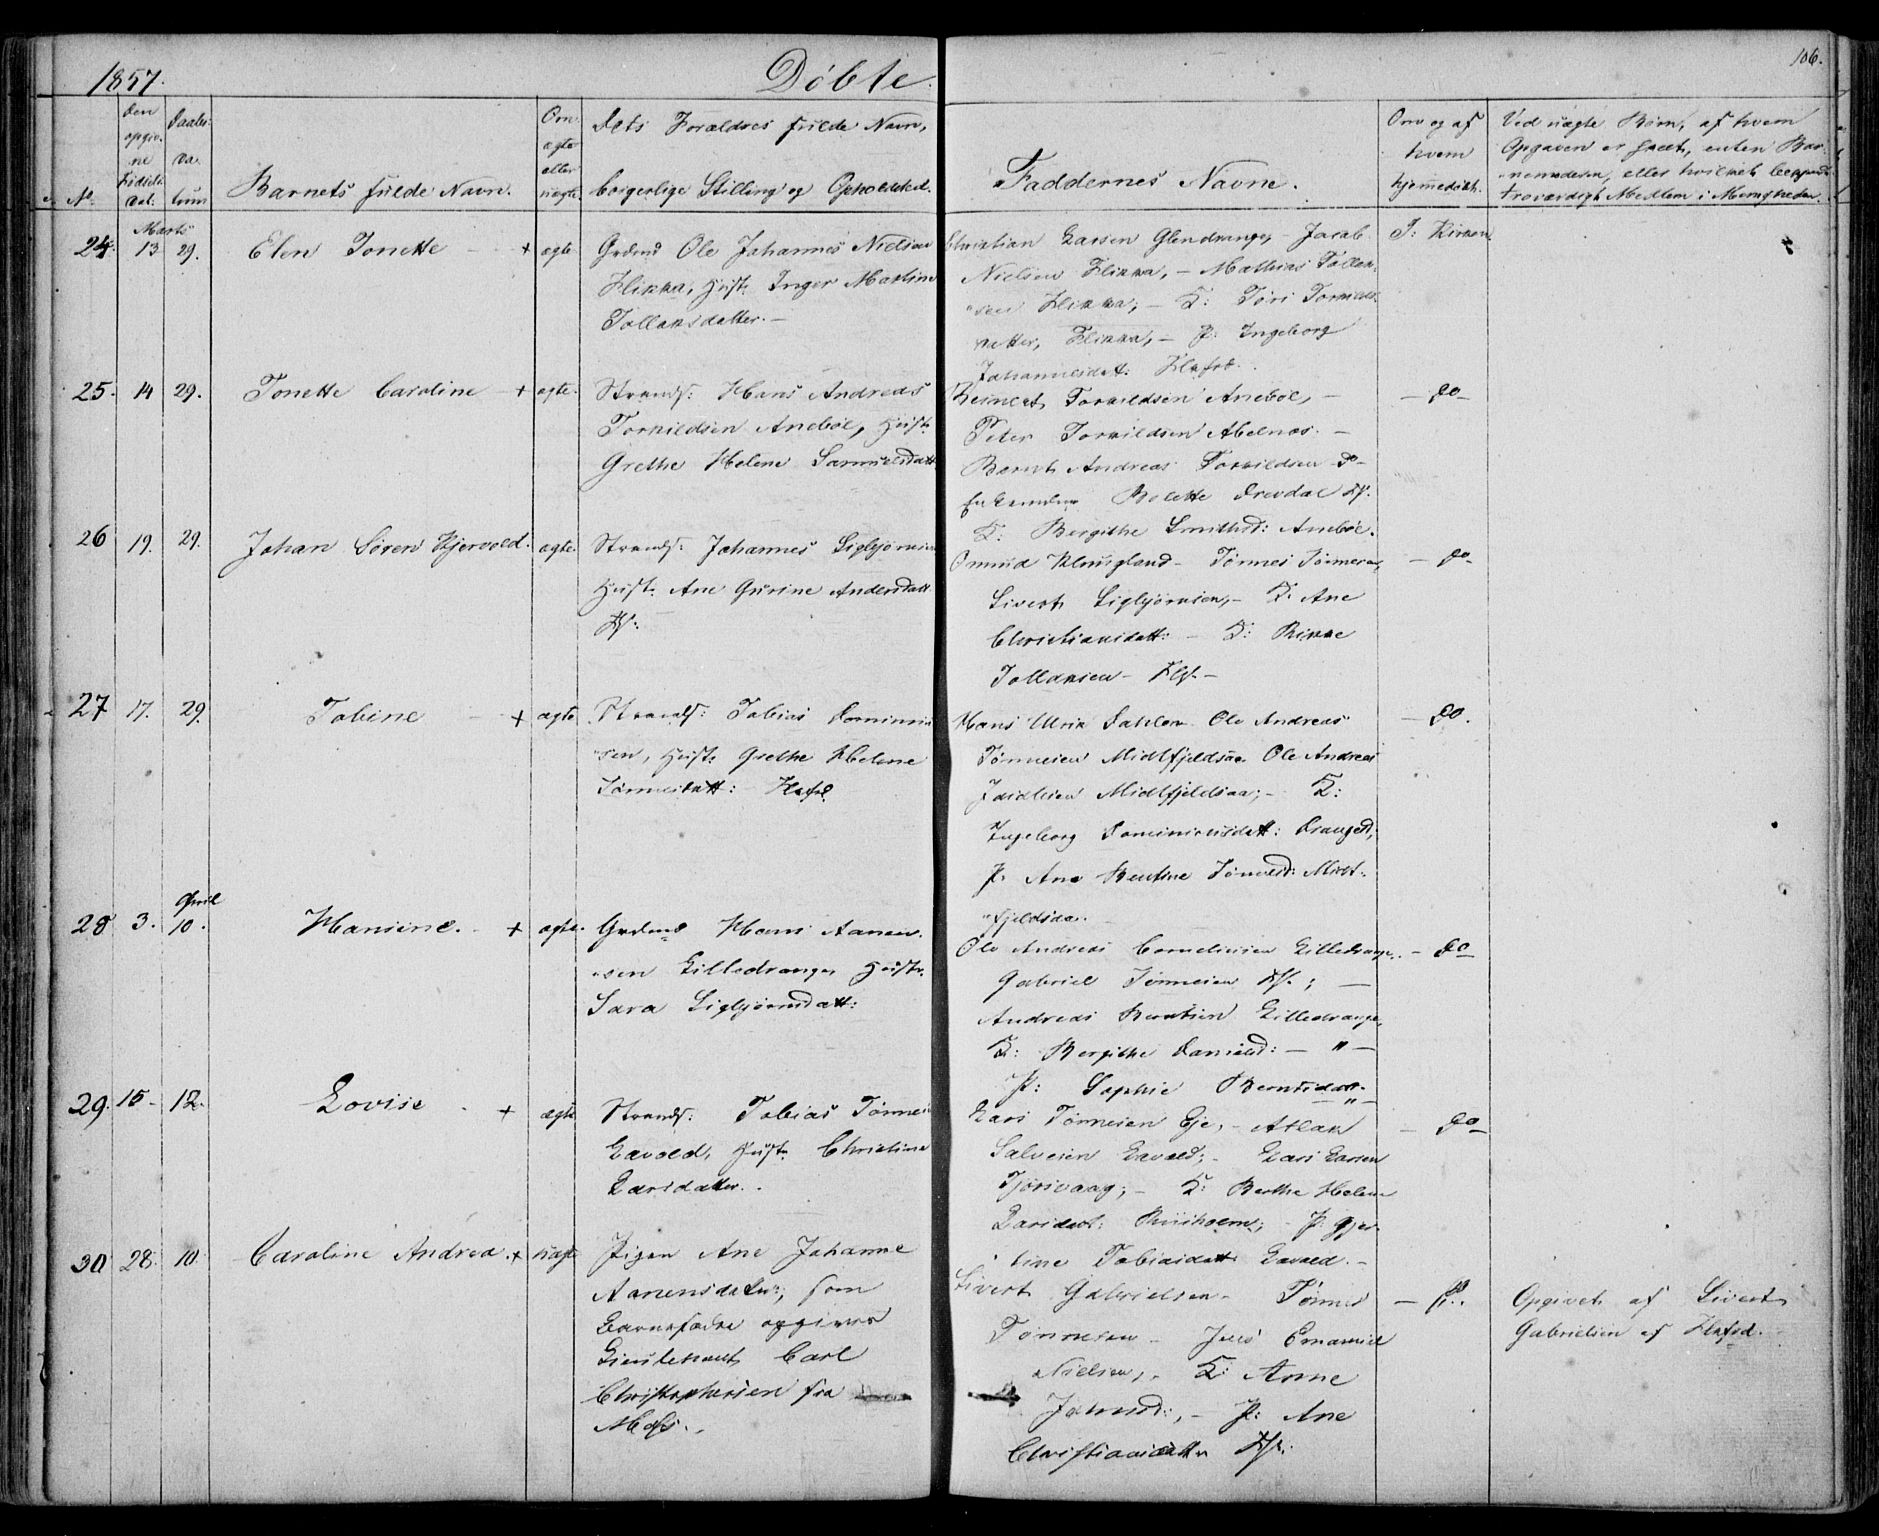 1857.
Döbte.
106.
No.
Den opgivne Födsels Dat:
Daabs Datum
Barnets fulde Navn.
Om ægte eller uægte
Dets Forældres fulde Navn,
borgerlige Stilling og Opholdsted.
Faddernes Navne.
Om og af hvem hjemmedöbt.
Ved uægte Börn, af hvem
Opgaven er skeet, enten Bar-
nemoderen, eller hvilket
troværdigt Medlem i Menigheden.
Marts
24. 13 29. Elen Tonette + ægte
Ole Johannes Nielsen
Flikka, Hust: Inger Martine
Tollaksdatter. —
Christian Larsen Glendrange, — Jacob
Nielsen Flikka, — Mathias Tollak-
sen Flikka, — K: Töri
datter, Flikka, — P: Ingeborg
Johannesdat: Flkfrd.
I: Kirken
25. 14 29. Tonette Caroline + ægte.
Strands: Hans Andreas
Torkildsen Aneböe, Hust:
Grethe Helene Samuelsdatt
Torkildsen Aneböe, —
Peter Torkildsen Abelnæs. —
Berent Andreas Torkildsen Do —
Bolette Drevdal Kf.
K: Bergithe Smithsd: Aneböe.
— Do —
26 19. 29. Johan Sören Hjervold. ægte.
Strands: Johannes Sigbjörnsen
Hust: Ane Gurine Andersdatt
Omund Klungland — Tönnes Tönnesen,
Sivert Sigbjörnsen, — K: Ane
Christiansdatt: — K: Rikke
Tollaksen — Flf. —
— Do —
27 17. 29. Tobine — + ægte
Strands: Tobias Dominicu-
sen, Hust: Grethe Helene
Tönnesdatt: Flkfrd.
Hans Ulrik Dahlen Ole Andreas
Tönnesen Midtfjeldsaa Ole Andreas
Midtfjeldsaa; — K:
Ingeborg Dominicusdatt: Dranged;
P: Ane Bentine Tönnesd: Midt-
fjeldsaa.
— Do.
April
28 3. 10. Hansine. — + ægte.
Hans Aanen-
sen Lilledrange Hust:
Sara Sigbjörnsdatt:
Ole Andreas Corneliusen Lilledrange.
Gabriel Tönnesen Kf.; —
Andreas Berntsen Lilledrange,
K: Bergithe Danielsd: — " —
P: Sophie Berntsdatt.
— " —
— Do
29. 15 — 12. Lovise — + ægte
Strands: Tobias Tönnes
Lavold, Hust: Christine
Larsdatter.
Lars Tönnesen Eje, — Atlak
Salvesen Lavold; — Lars Larsen
Tjörsvaag; — K: Berthe Helene
Larsdat: — P: Gjer-
tine Tobiasdatt Lavold. —
— Do
30 28. 10. Caroline Andrea. + uægte
Pigen Ane Johanne
Aanensdatter, som
Barnefader opgives
Lieutenant Carl
Christophersen fra
Moss.
Sivert Gabrielsen — Tönnes
Tönnesen — Jens Emanuel
Nielsen, — K: Anne
— P: Ane
Christiansdatter Kf:
— Do.
Opgivet af Sivert
Gabrielsen af Flkfrd.